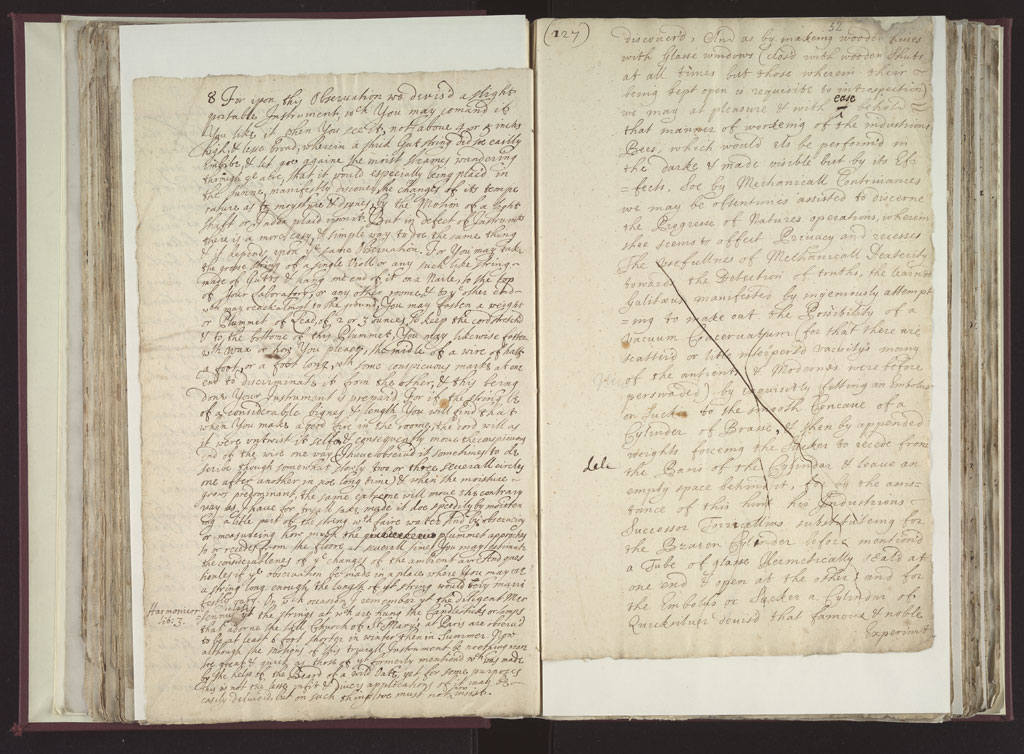 8 For upon this Observation we devis'd a slight
portable Instrument, wch You may comand it
You like it when You see it, not above 4 or 5 inches
high, & lesse broad, wherein a thick Gut string did soe easily
Imbibe, & let goe againe the moist steames wandering
through ye aire, that it would especially being placed in
the Sunne, manifestly discover the changes of its tempe
rature as to moysture & drynes, by the Motion of a light
shaft or Index plac'd upon it. But in defect of Instrumts
there is a more easy & simple way to doe the same thing
& it depends upon ye same Observation. For You may take
the grosse string of a single Violl or any such like string
made of Gutts & hang one end of it on a Naile, to the top
of Your Laboratory, or any other roome, & to ye other end
wch may reach almost to the ground, You may fasten a weight
or Plummet of Lead, of 2 or 3 ounces, to keep the cord stretcht
& to the bottome of this Plummet, You may likewise fasten
wth wax or how You please, the middle of a wire of halfe
a foot, or a foot long, wth some conspicuous marks at one
end to discriminate it from the other, & this being
done Your Instrument is prepard For if the string be
of a considerable bignes & length You will find that
when You make a good fire in the roome, the cord will as
it were untwist it selfe & consequently move the conspicuous
end of the wire one way (I have observ'd it sometimes to de
scribe though somewhat slowly two or three severall circles
one after another in noe long time) & when the moisture
grows predominant, the same extreme will move the contrary
way as I have for tryall sake made it doe speedily by moisten
ing a little part of the string wth faire water And by observing
or measureing how much the plummet approaches
to or recedes from the floore at severall times You may estimate
the considerablenes of ye changes of the ambient aire And ques
tionles if ye observation be made in a place where You may use
a string long enough, the length of ye string would very mani
festly vary. On wch occasion I remember yt the diligent Mer
sennus relates yt the strings at wch are hung the Candlesticks or lamps
Harmonicor
lib: 3.
that adorne the tall Church of St. Mary's at Paris are observd
to be at least 6 foot shorter in winter then in Summer Now
although the motions of this tryvial Instrument be nothing neer
soe great & quick as those of yt formerly mentiond wch was made
by the help of the Beard of a wild Oate, yet for some purposes
this is not the lesse usefull & divers applications of it may be
easily devised, but on such things we must not insist.
(127)
52
discovered; And as by makeing wooden hives
with Glasse windows (clos'd with wooden Shuts
at all times but those wherein their
being kept open is requisite to introspection)
we may at pleasure & with ease behold
that manner of workeing of the industrious
Bees, which would els be performd in
the darke & made visible but by its Ef-
=fects, Soe by Mechanicall Contrivances
we may be oftentimes assisted to discerne
the Progresse of Natures operations, wherein
shee seems to affect Privacy and recesses
The usefullnes of Mechanicall Dexterity
towards the Detection of truths, the learned
Galilæus manifested by ingeniously attempt
=ing to make out the Possibility of a
Vacuum Coacervatum (for that there are
scatterd or little interspersd vacuity's many
of the antients & Moderns were before
perswaded) by exquisitely fitting an Embolus
or Sucker to the smooth Concave of a
Cylinder of Brasse, & then by appended
weights forceing the Sucker to recede from
dele
the Basis of the Cylinder & leave an
empty space behind it, & by the assis-
tance of this hint his Industrious
Successor Torricellius substituteing for
the Brazen Cylinder before mentiond
a Tube of glasse Hermetically seald at
one end & open at the other; and for
the Embolus or Sucker a Cylinder of
Quicksilver devisd that famous & noble
Experimt